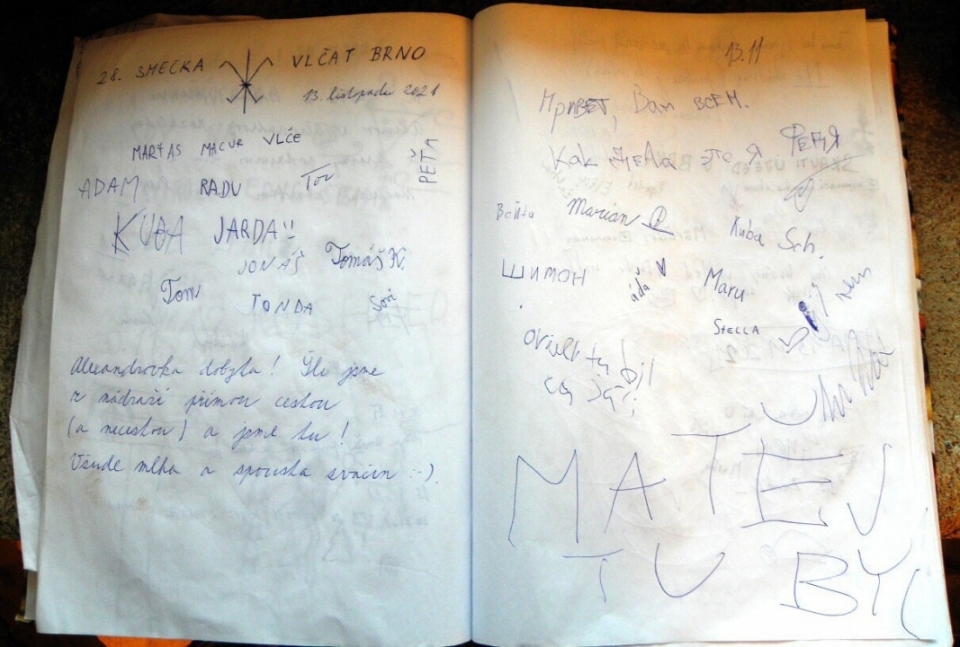 28. SMEČKA VLČAT BRNO
13. listopadu 2021
MARŤAS MACUR VLČE
PEŤA
ADAM RADU Tom
KUBA JARDA!!
JONÁŠ Tomáš K.
Tom TONDA
Alexandrovka dobyta! Šli jsme
z nádraží přímou cestou
(a necestou) a jsme tu!
Všude mlha a spousta svačin :-).
13.11
Привет, Вам всем.
Как дела это я Федя
Marian Kuba Sch.
ШИМОН áda Maru
STELLA
tu byl
MATEJ
TU BYL